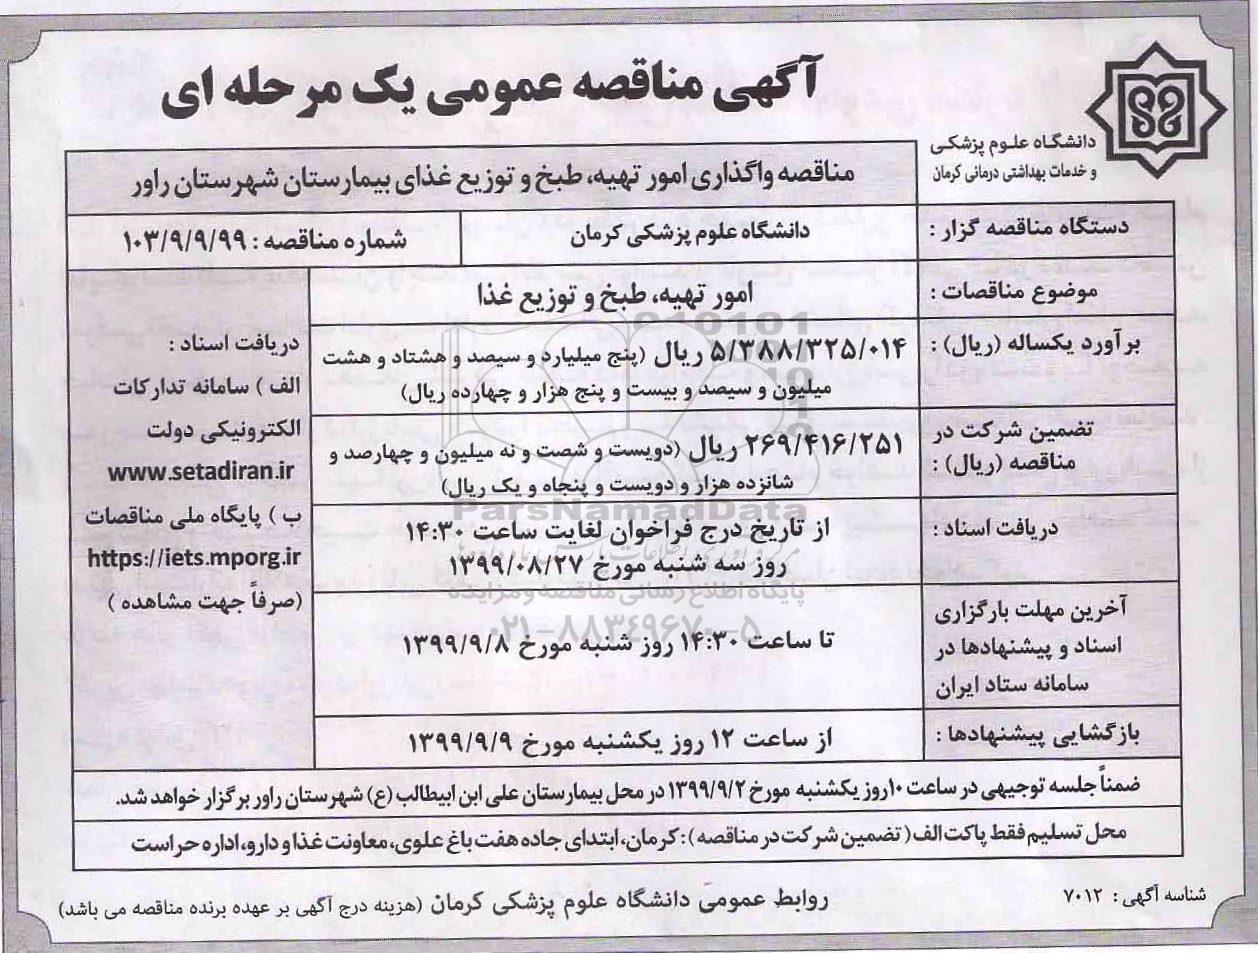 آگهی مناقصه عمومی یک مرحله ای
دانشگاه علوم پزشکی
و خدمات بهداشتی درمانی کرمان
مناقصه واگذاری امور تهیه، طبخ و توزیع غذای بیمارستان شهرستان راور
دستگاه مناقصه گزار :
دانشگاه علوم پزشکی کرمان
شماره مناقصه : ۱۰۳/۹/۹/۹۹
موضوع مناقصات :
امور تهیه، طبخ و توزیع غذا
برآورد یکساله (ریال) :
۵/۳۸۸/۳۲۵/۰۱۴ ریال (پنج میلیارد و سیصد و هشتاد و هشت
میلیون و سیصد و بیست و پنج هزار و چهارده ریال)
تضمین شرکت در
مناقصه (ریال) :
۲۶۹/۴۱۶/۲۵۱ ریال (دویست و شصت و نه میلیون و چهارصد و
شانزده هزار و دویست و پنجاه و یک ریال)
دریافت اسناد :
از تاریخ درج فراخوان لغایت ساعت ۱۴:۳۰
روز سه شنبه مورخ ۱۳۹۹/۰۸/۲۷
آخرین مهلت بارگزاری
اسناد و پیشنهادها در
سامانه ستاد ایران
تا ساعت ۱۴:۳۰ روز شنبه مورخ ۱۳۹۹/۹/۸
بازگشایی پیشنهادها :
از ساعت ۱۲ روز یکشنبه مورخ ۱۳۹۹/۹/۹
دریافت اسناد :
الف ) سامانه تدارکات
الکترونیکی دولت
www.setadiran.ir
ب ) پایگاه ملی مناقصات
https://iets.mporg.ir
(صرفاً جهت مشاهده )
ضمناً جلسه توجیهی در ساعت ۱۰روز یکشنبه مورخ ۱۳۹۹/۹/۲ در محل بیمارستان علی ابن ابیطالب (ع) شهرستان راور برگزار خواهد شد.
محل تسلیم فقط پاکت الف ( تضمین شرکت در مناقصه ) : کرمان، ابتدای جاده هفت باغ علوی، معاونت غذا و دارو، اداره حراست
شناسه آگهی : ۷۰۱۲
روابط عمومی دانشگاه علوم پزشکی کرمان (هزینه درج آگهی بر عهده برنده مناقصه می باشد)
ParsNamadData
پایگاه اطلاع رسانی مناقصه و مزایده
۰۲۱-۸۸۳۴۹۶۷۰-۵